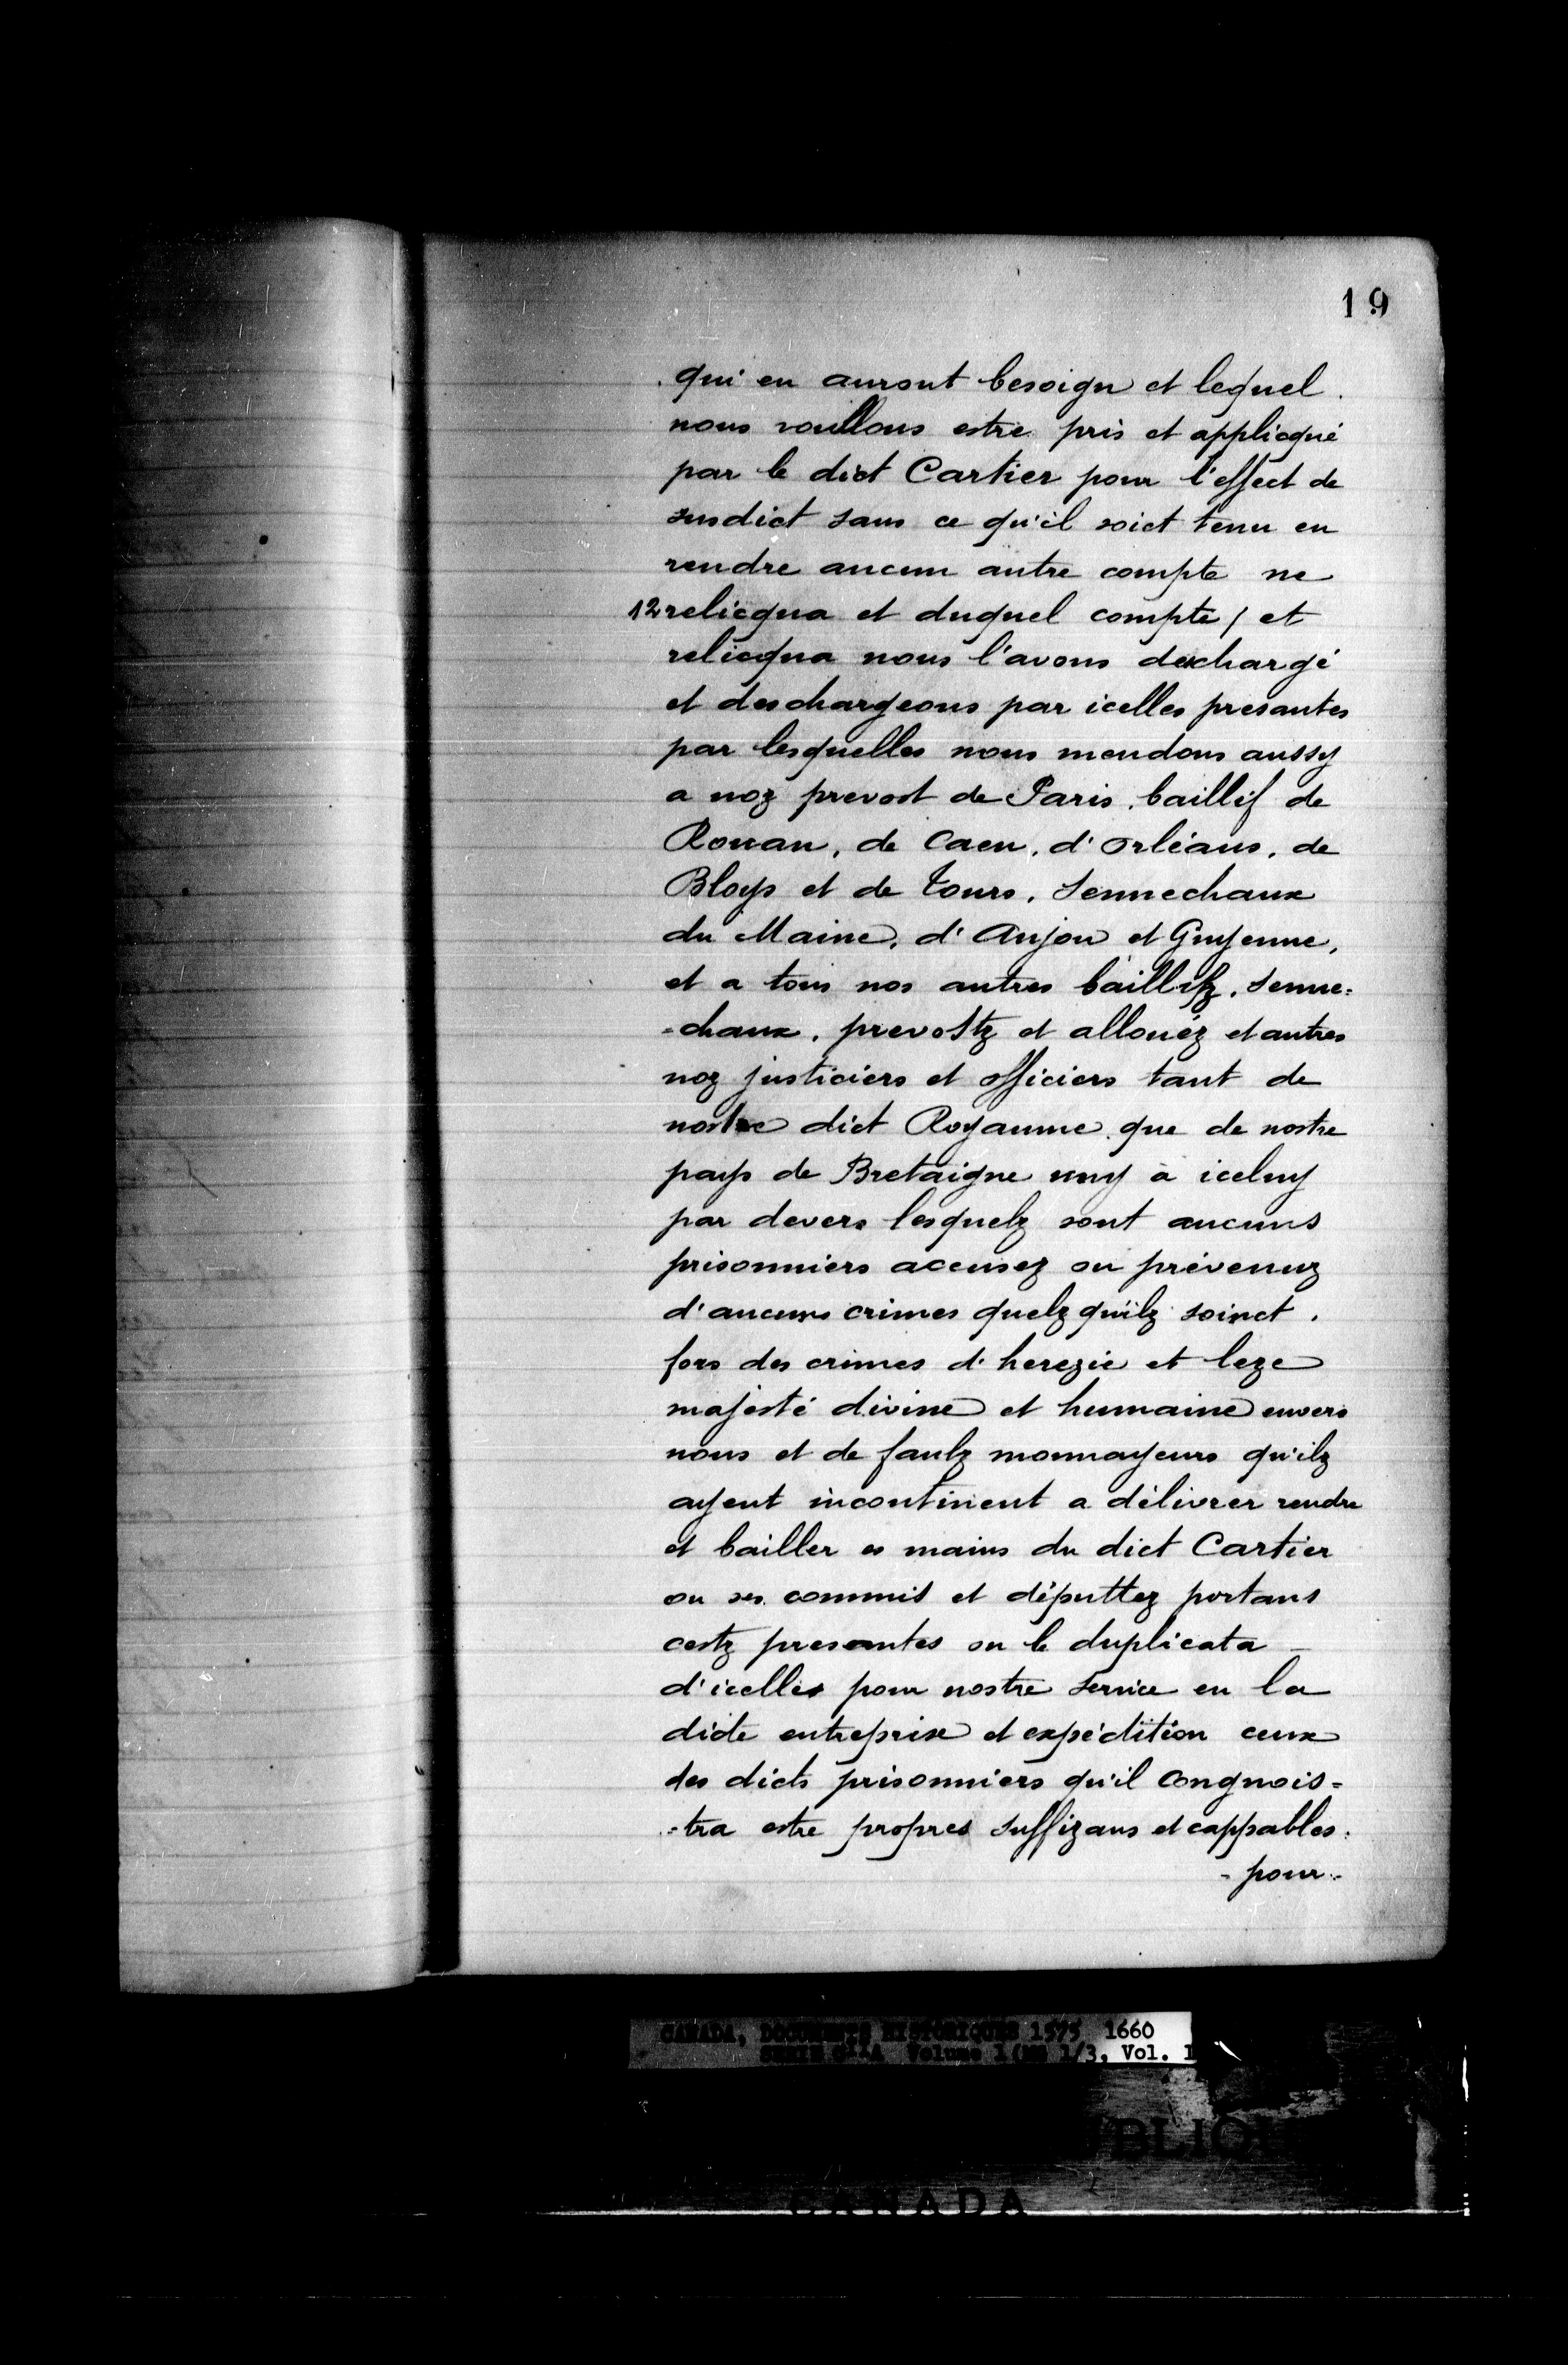 19
qui en auront besoign et lequel
nous voullons estre pris et applicqué
par le dict Cartier pour l'effect de
susdict sans ce qu'il soict tenu en
rendre aucun autre compte ne
12 relicqua et duquel compte / et
relicqua nous l'avons deschargé
et deschargeons par icelles presantes
par lesquelles nous mendons aussy
a noz prevost de Paris, baillif de
Rouan, de Caen, d'Orléans, de
Bloys et de Tours, Sennechaux
du Maine, d'Anjou et Guyenne,
et a tous nos autres baillifz, Senne=
=chaux, prevostz et allouéz et autres
noz justiciers et officiers tant de
nostre dict Royaume que de nostre
pays de Bretaigne uny à iceluy
par devers lesquelz sont aucuns
prisonniers accusez ou prévenuz
d'aucuns crimes quelz qu'ilz soinct,
fors des crimes d'herezie et leze
majesté divine et humaine envers
nous et de faulz monnayeurs qu'ilz
ayent incontinent a délivrer rendre
et bailler es mains du dict Cartier
ou ses commis et députtez portans
cestz presantes ou le duplicata
d'icelles pour nostre service en la
dicte entreprise et expédition ceux
des dicts prisonniers qu'il congnois=
=tra estre propres suffizans et cappables
- pour -
CANADA, DOCUMENTS HISTORIQUES 1575 1660
Volume 1 (MG 1/3, Vol. 1
CANADA